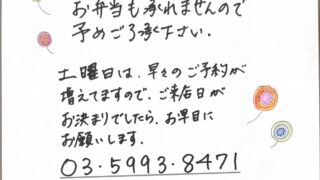 お弁当も承れませんので
予めご了承下さい。
土曜日は、早々のご予約が
増えてますので、ご来店日が
お決まりでしたら、お早目に
お願いします。
03・5993・8471